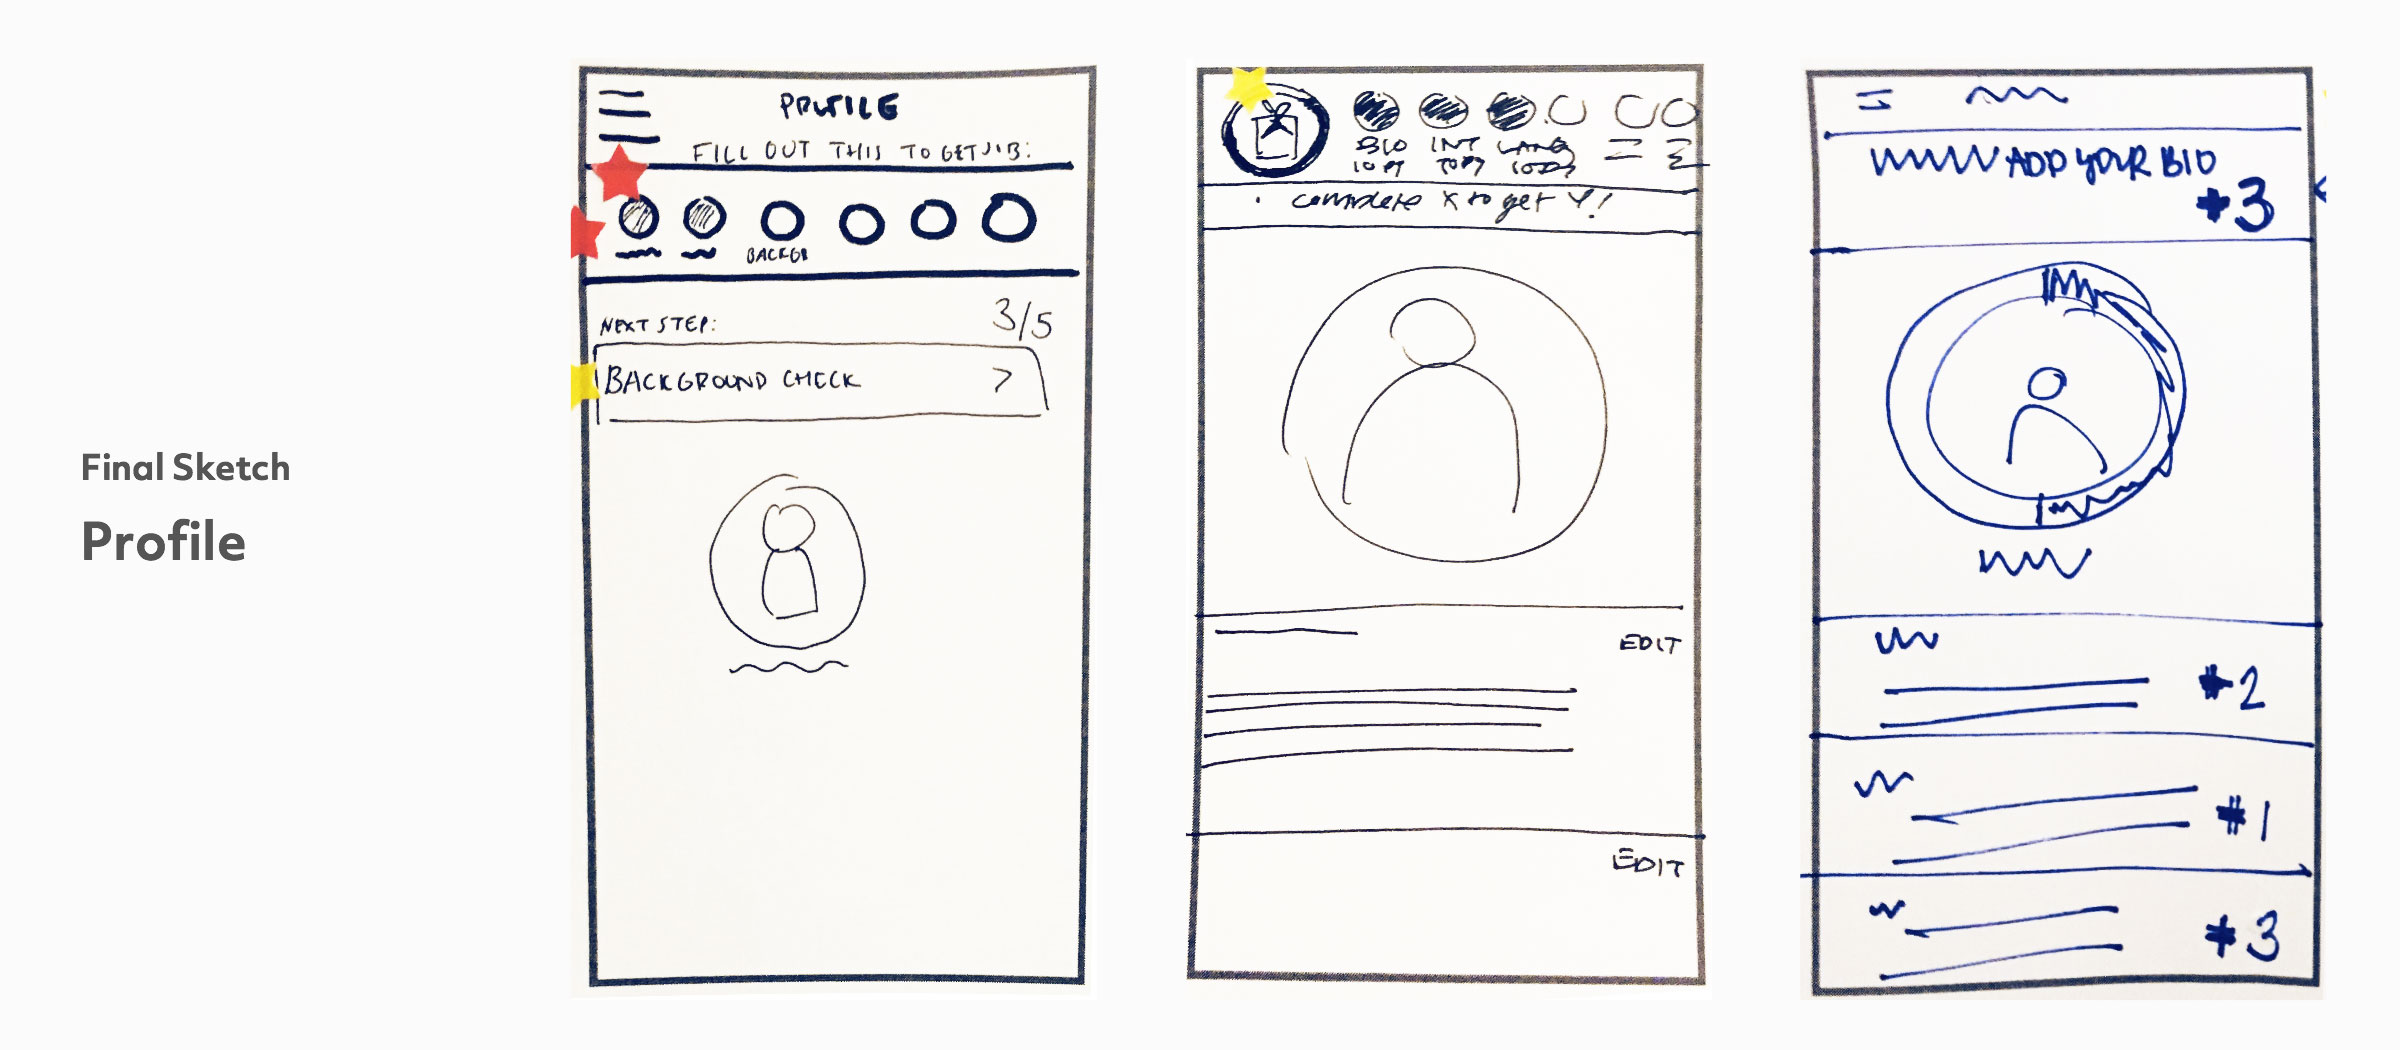 Final Sketch
Profile
PROFILE
FILL OUT THIS TO GET JOB:
BACKGR
NEXT STEP: 3/5
BACKGROUND CHECK >
BIO INT LANG
10 PT
complete X to get Y!
EDIT
EDIT
ADD YOUR BIO
+3
+2
#1
+3